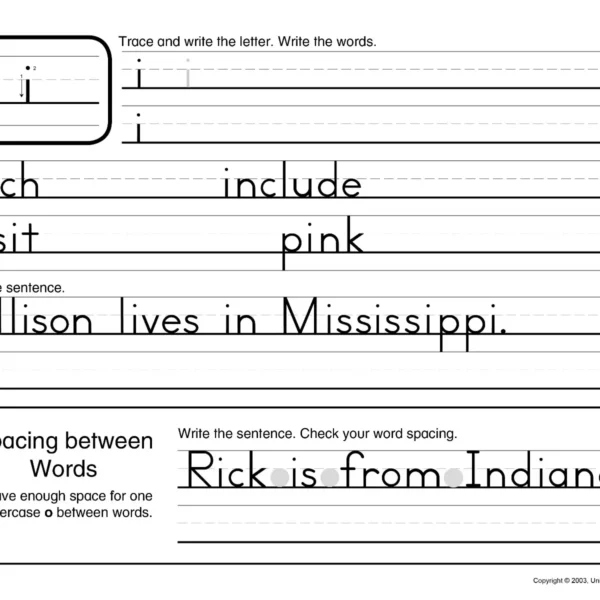 Trace and write the letter. Write the words.
2
i
i i
i
ch include
sit pink
sentence.
llison lives in Mississippi.
acing between
Words
Write the sentence. Check your word spacing.
Rick is from Indian
ve enough space for one
ercase o between words.
Copyright © 2003, Un